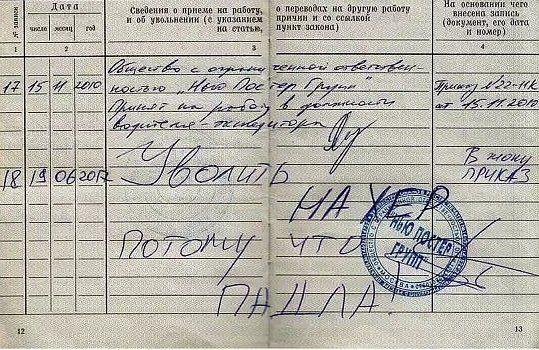 № записи
Дата
число месяц год
Сведения о приеме на работу, о переводах на другую работу
и об увольнении (с указанием причин и со ссылкой
на статью, пункт закона)
На основании чего
внесена запись
(документ, его дата
и номер)
1 2 3 4
Общество с ограниченной ответствен-
17 15 11 2010 ностью „Нью Постер Групп" Приказ №22-НК
Принят на работу в должности от 15.11.2010
водителя-экспедитора
18 19 06 2012 Уволить В жопу
ПРИКАЗ
НАХЕР
Потому что
ПАДЛА!
НЬЮ ПОСТЕР
ГРУПП
МОСКВА
12 13